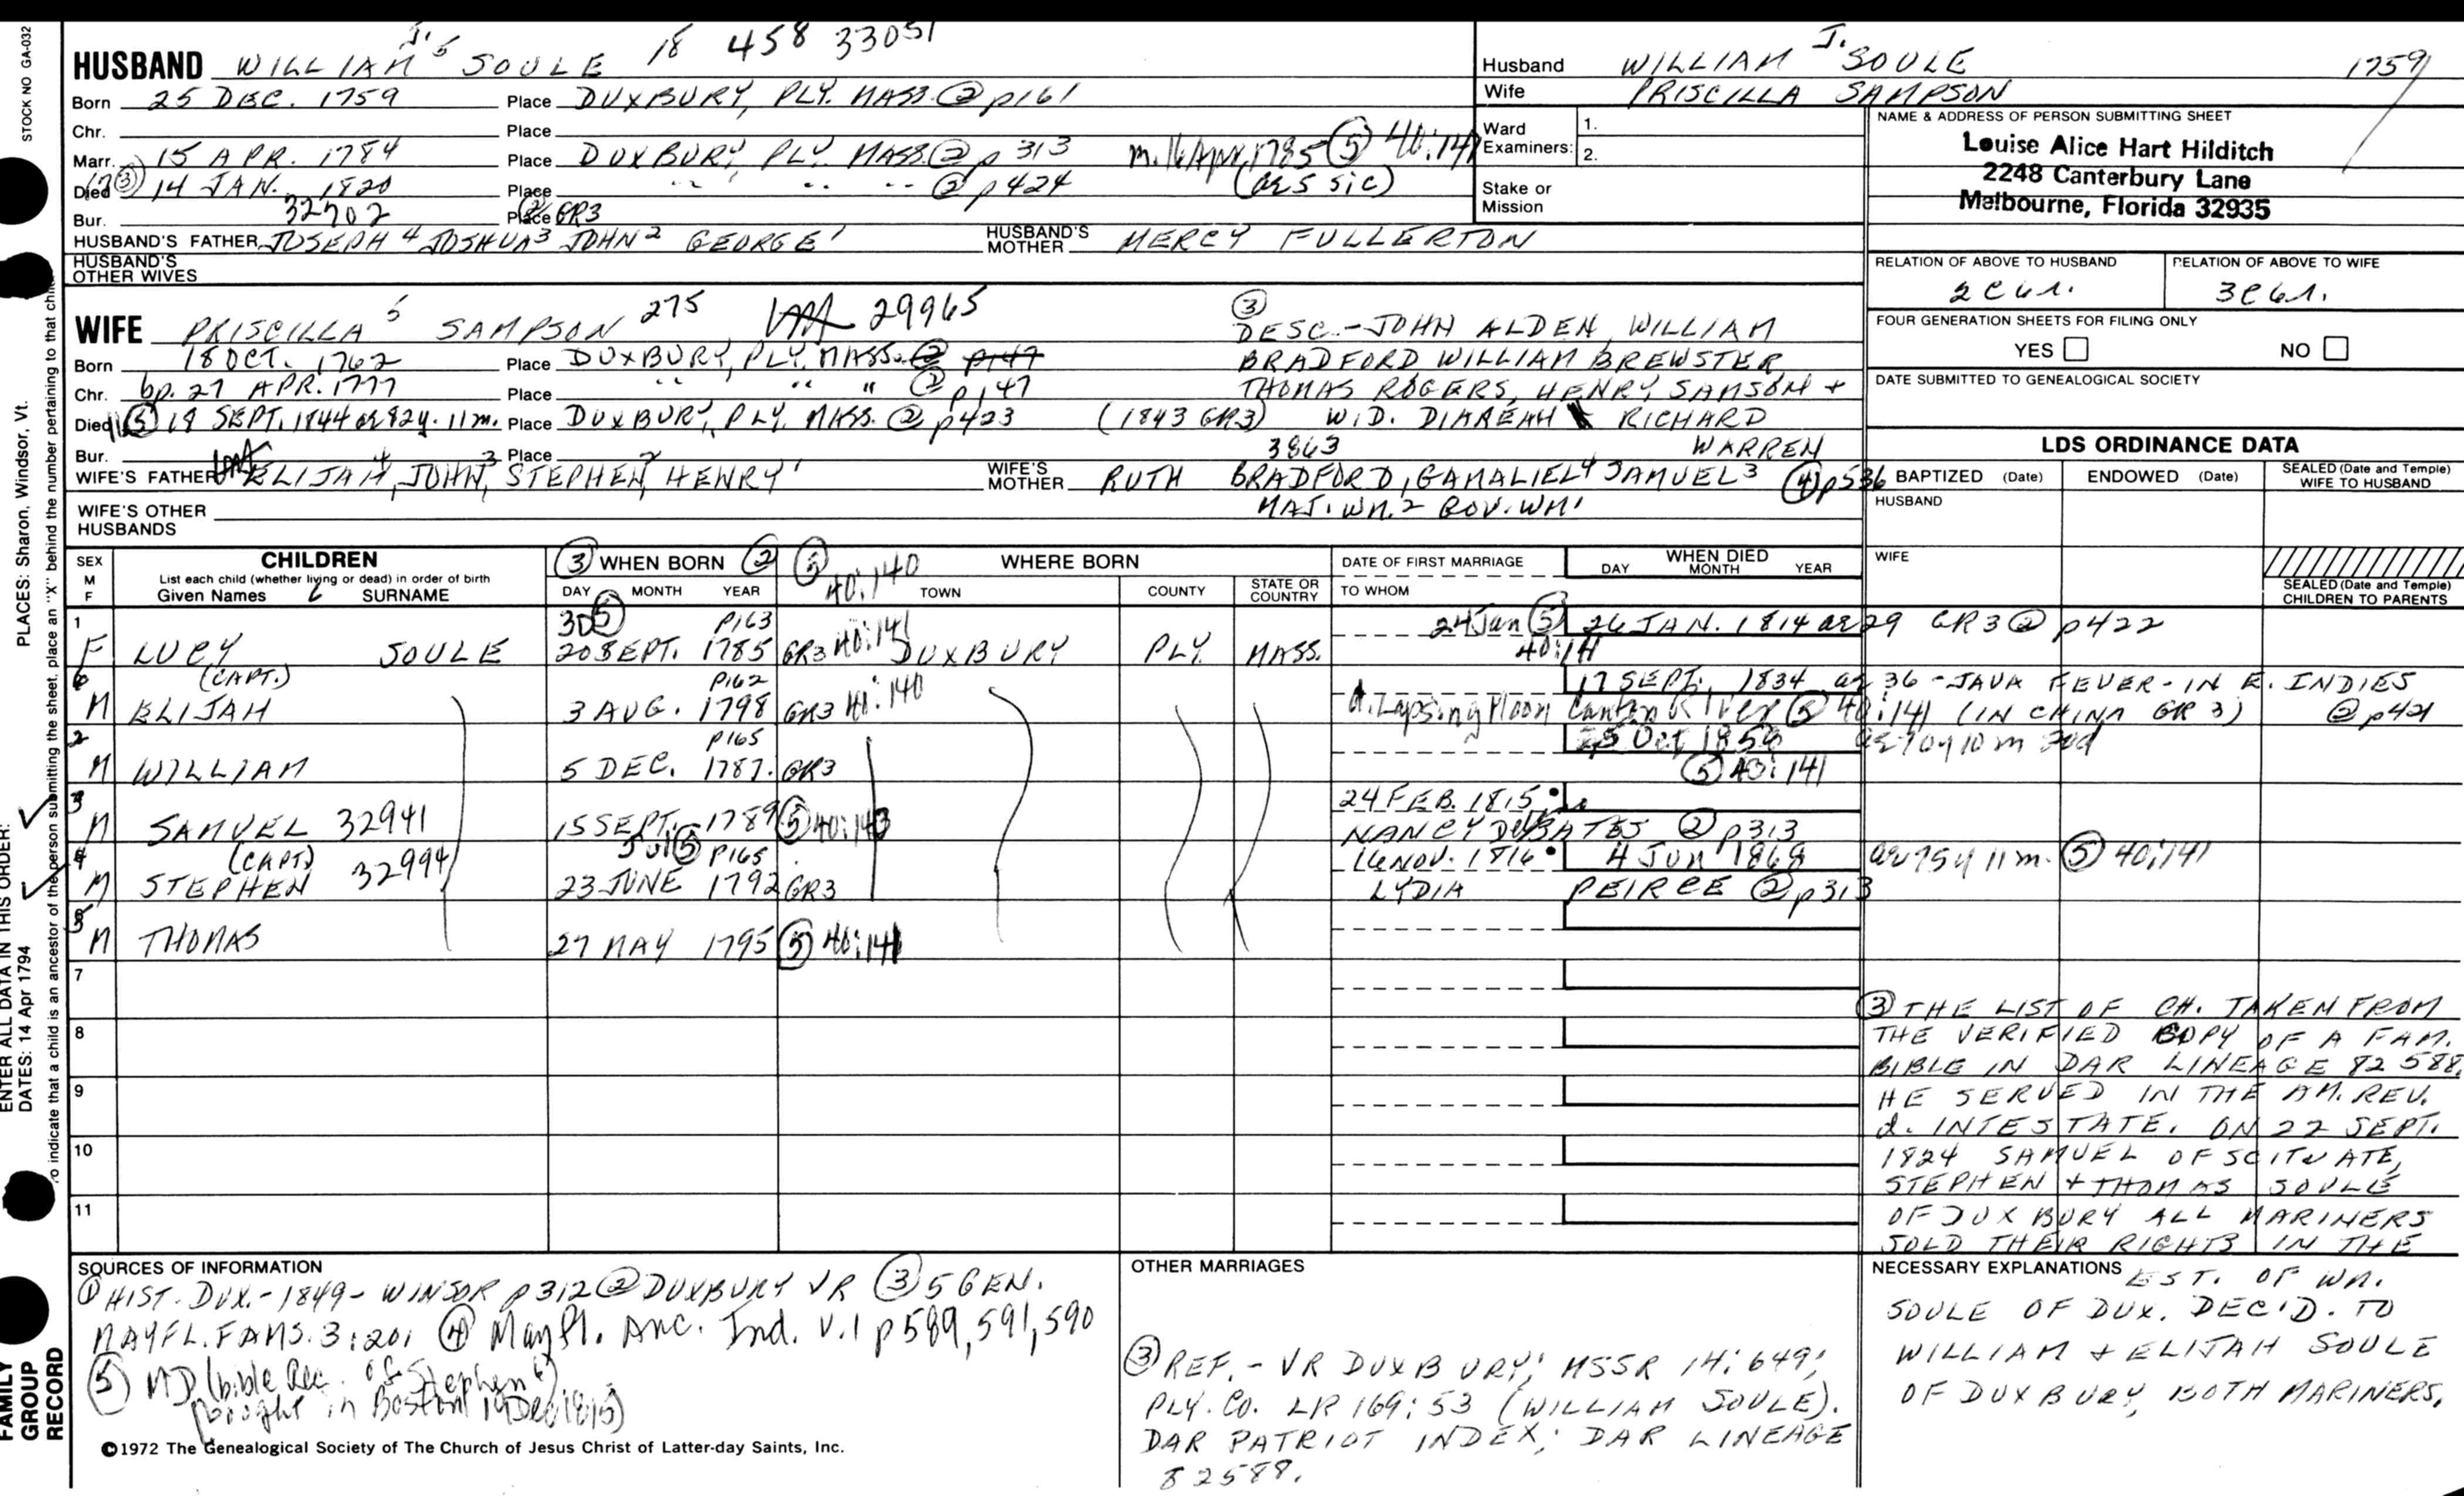 STOCK NO GA-032
PLACES: Sharon, Windsor, Vt.
ENTER ALL DATA IN THIS ORDER:
DATES: 14 Apr 1794
To indicate that a child is an ancestor of the person submitting the sheet, place an "X" behind the number pertaining to that child
FAMILY GROUP RECORD
HUSBAND WILLIAM J. 5 SOULE 18 458 33051
Born 25 DEC. 1759 Place DUXBURY, PLY. MASS. ② p161
Chr. Place
Marr. 15 APR. 1784 Place DUXBURY, PLY. MASS. ② p 313 m. 16 Apr. 1785 ⑤ 40:141
Died ③ 14 JAN. 1820 Place " " " ② p424 (ae 5 sic)
Bur. 32702 Place GR3
HUSBAND'S FATHER JOSEPH 4 JOSHUA 3 JOHN 2 GEORGE 1 HUSBAND'S MOTHER MERCY FULLERTON
HUSBAND'S OTHER WIVES
Husband WILLIAM J. SOULE 1759
Wife PRISCILLA SAMPSON
Ward Examiners: 1.
2.
Stake or Mission
NAME & ADDRESS OF PERSON SUBMITTING SHEET
Louise Alice Hart Hilditch
2248 Canterbury Lane
Malbourne, Florida 32935
RELATION OF ABOVE TO HUSBAND RELATION OF ABOVE TO WIFE
FOUR GENERATION SHEETS FOR FILING ONLY
YES NO
DATE SUBMITTED TO GENEALOGICAL SOCIETY
WIFE PRISCILLA 5 SAMPSON 275 29965 ③ DESC.-JOHN ALDEN, WILLIAM
Born 18 OCT. 1762 Place DUXBURY, PLY. MASS. ② p147 BRADFORD WILLIAM BREWSTER
Chr. bp. 27 APR. 1777 Place " " " ② p147 THOMAS ROGERS, HENRY SAMSON +
Died ⑤ 18 SEPT. 1844 ae 82y. 11m. Place DUXBURY, PLY. MASS. ② p423 (1843 GR3) WID. DIAREAH RICHARD
Bur. Place 3863 WARREN
WIFE'S FATHER ELIJAH 4, JOHN 3, STEPHEN 2, HENRY 1 WIFE'S MOTHER RUTH BRADFORD, GAMALIEL 4 SAMUEL 3 ④ p536
MAJ. WM. 2 GOV. WM 1
WIFE'S OTHER HUSBANDS
LDS ORDINANCE DATA
BAPTIZED (Date) ENDOWED (Date) SEALED (Date and Temple) WIFE TO HUSBAND
HUSBAND
WIFE
SEALED (Date and Temple) CHILDREN TO PARENTS
SEX M F
CHILDREN
List each child (whether living or dead) in order of birth
Given Names SURNAME
③ WHEN BORN ②
DAY MONTH YEAR
⑤ 40:140 WHERE BORN
TOWN COUNTY STATE OR COUNTRY
DATE OF FIRST MARRIAGE
TO WHOM
WHEN DIED
DAY MONTH YEAR
1 30 ⑤ P163 24 Jan ⑤ 26 JAN. 1814 ae 29 GR3 ② p422
F LUCY SOULE 20 SEPT. 1785 GR3 40:141 DUXBURY PLY. MASS. 40:141
6 (CAPT.) P162 17 SEPT. 1834 ae 36 - JAVA FEVER - IN E. INDIES
M ELIJAH 3 AUG. 1798 GR3 40:140 d. Lapsing Moon Canton River ⑤ 40:141 (IN CHINA GR 3) ② p421
2 P165 25 Oct 1858 ae 70y 10m 20d
M WILLIAM 5 DEC. 1787. GR3 ⑤ 40:141
3 24 FEB. 1815
M SAMUEL 32941 15 SEPT. 1789 ⑤ 40:143 NANCY D. BATES ② p313
4 (CAPT) 32994 Jul ⑤ P165 16 NOV. 1816 4 Jun 1868 ae 75y 11m. ⑤ 40:141
M STEPHEN 23 JUNE 1792 GR3 LYDIA PEIRCE ② p313
5
M THOMAS 27 MAY 1795 ⑤ 40:141
7
8
9
10
11
③ THE LIST OF CH. TAKEN FROM
THE VERIFIED COPY OF A FAM.
BIBLE IN DAR LINEAGE 82588.
HE SERVED IN THE AM. REV.
d. INTESTATE. ON 22 SEPT.
1824 SAMUEL OF SCITUATE,
STEPHEN + THOMAS SOULE
OF DUXBURY ALL MARINERS
SOLD THEIR RIGHTS IN THE
NECESSARY EXPLANATIONS EST. OF WM.
SOULE OF DUX. DEC'D. TO
WILLIAM + ELIJAH SOULE
OF DUXBURY, BOTH MARINERS.
SOURCES OF INFORMATION
① HIST. DUX.-1849-WINSOR p312 ② DUXBURY VR ③ 5 GEN.
MAYFL. FAMS. 3:201 ④ Mayfl. Anc. Ind. v.1 p589, 591, 590
⑤ MD (bible Rec. of Stephen 6)
(bought in Boston 19 Dec 1815)
©1972 The Genealogical Society of The Church of Jesus Christ of Latter-day Saints, Inc.
OTHER MARRIAGES
③ REF. - VR DUXBURY; MSSR 14:649;
PLY. CO. LR 169:53 (WILLIAM SOULE).
DAR PATRIOT INDEX; DAR LINEAGE
82588.